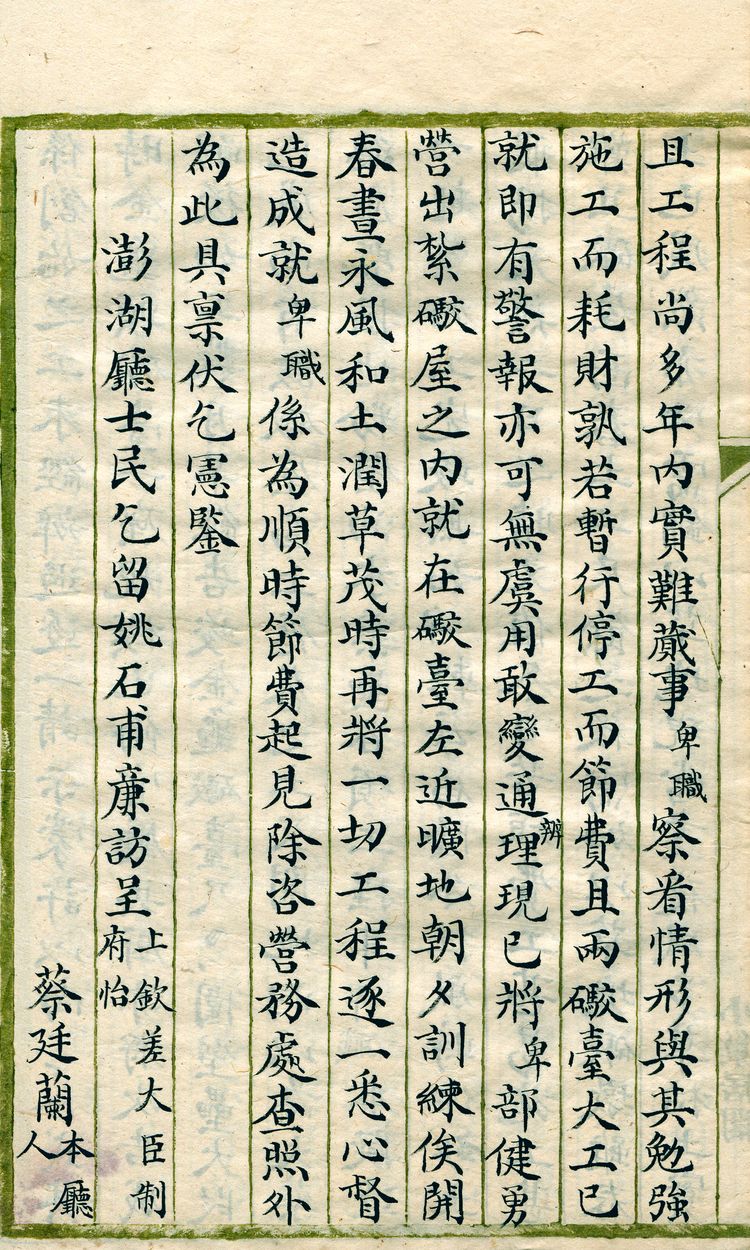 且工程尚多年内實難蕆事卑職察看情形與其勉強
施工而耗財孰若暫行停工而節費且兩礮臺大工已
就即有警報亦可無虞用敢變通辦理現已將卑部健勇
營出紮礮屋之内就在礮臺左近曠地朝夕訓練俟開
春晝永風和土潤草茂時再將一切工程逐一悉心督
造成就卑職係為順時節費起見除咨營務處查照外
為此具禀伏乞憲鑒
澎湖廳士民乞留姚石甫亷訪呈上欽差大臣制府怡
蔡廷蘭本廳人